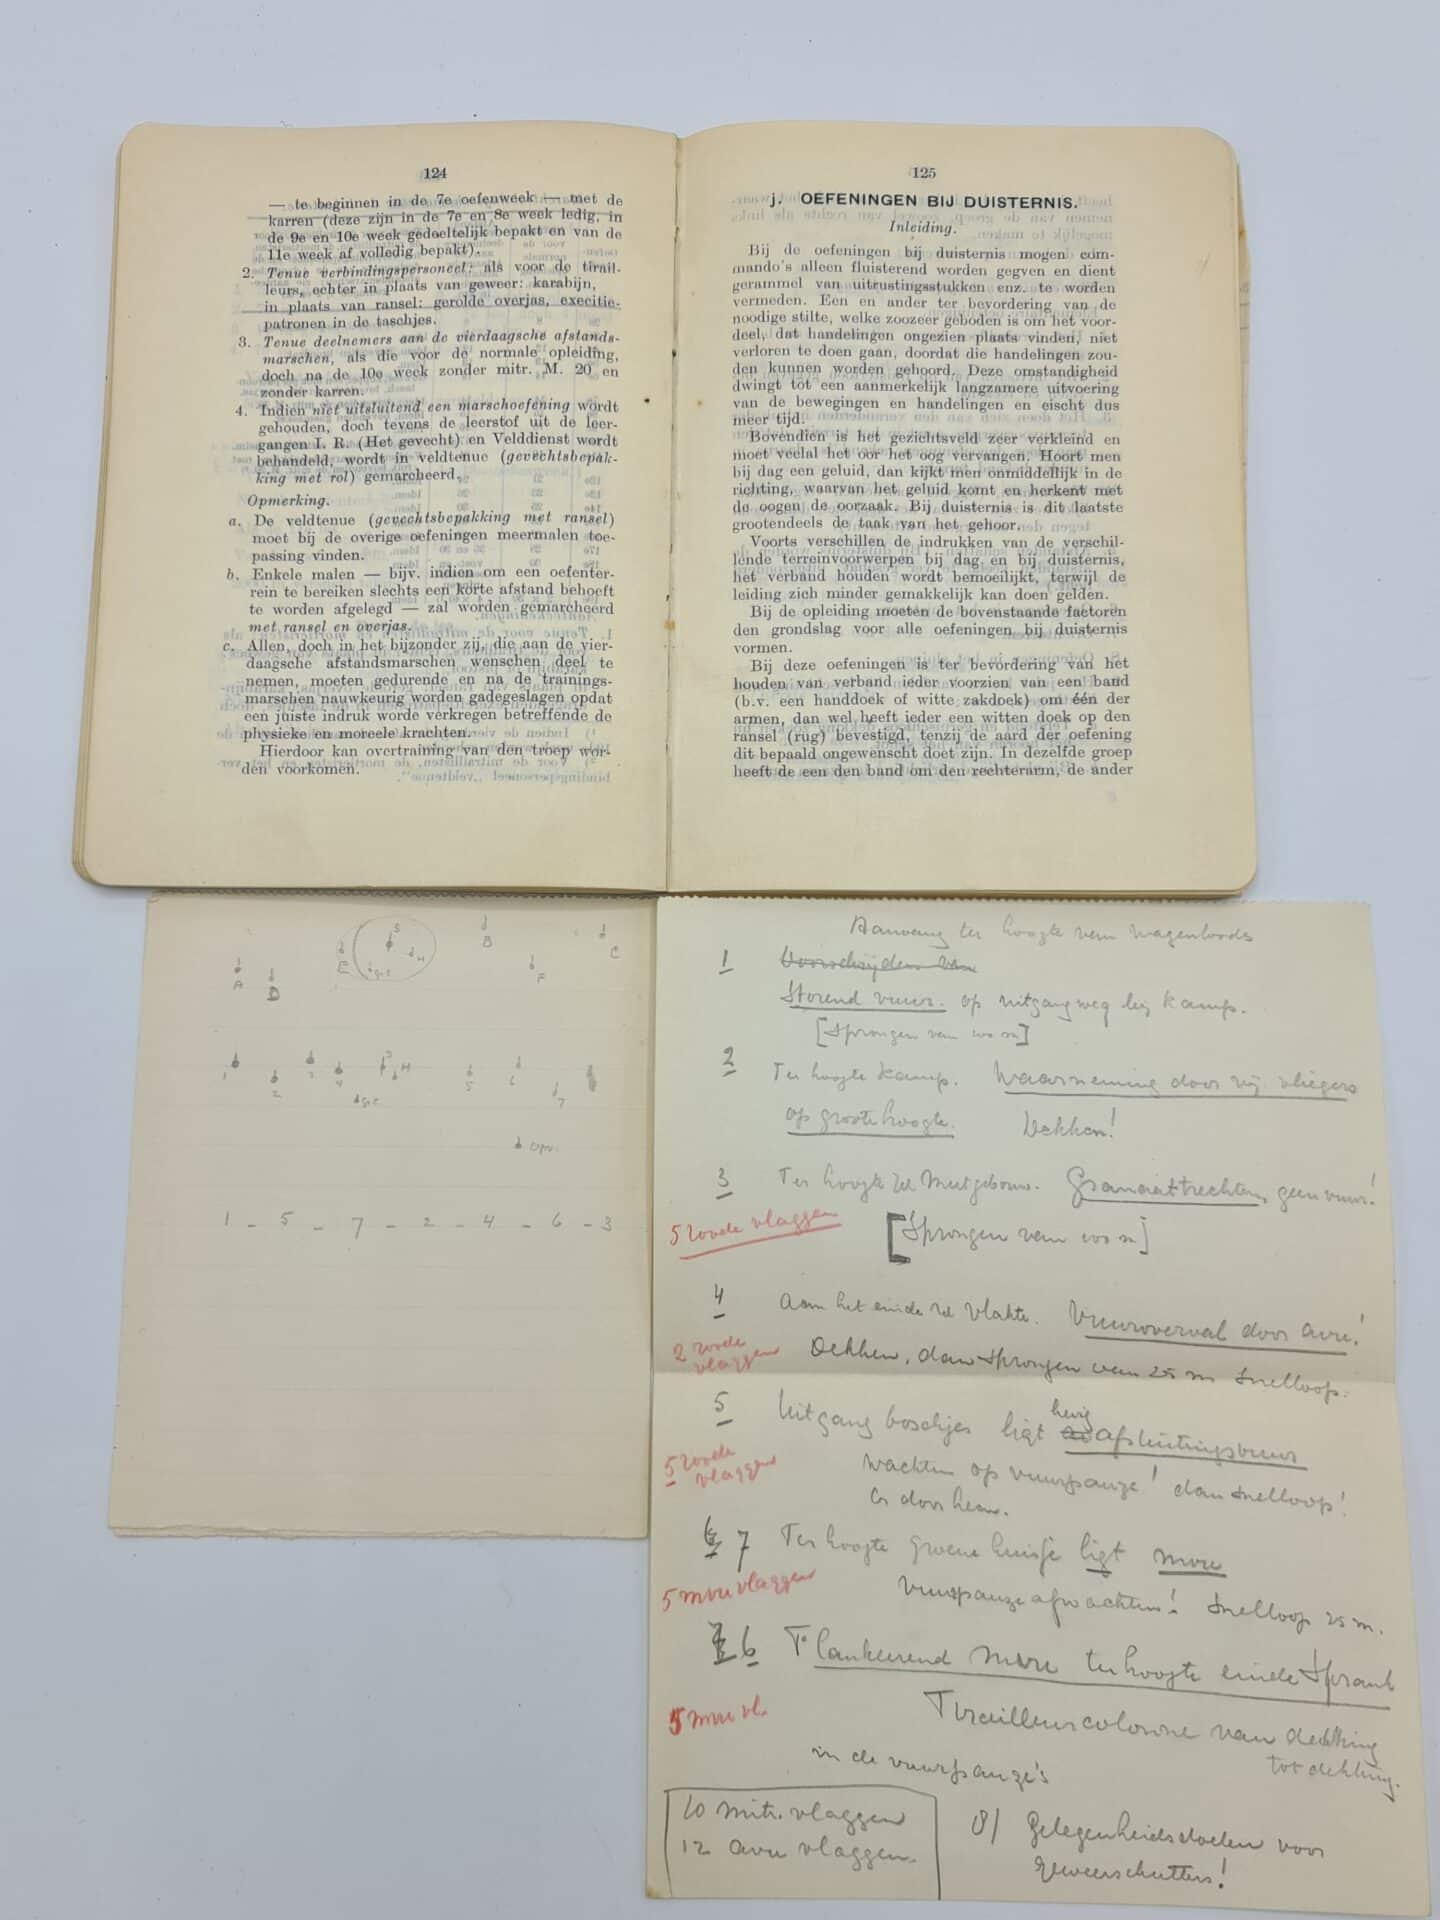 124
— te beginnen in de 7e oefenweek — met de
karren (deze zijn in de 7e en 8e week ledig, in
de 9e en 10e week gedeeltelijk bepakt en van de
11e week af volledig bepakt).
2. Tenue verbindingspersoneel: als voor de tirail-
leurs, echter in plaats van geweer: karabijn,
in plaats van ransel: gerolde overjas, exercitie-
patronen in de taschjes.
3. Tenue deelnemers aan de vierdaagsche afstands-
marschen, als die voor de normale opleiding,
doch na de 10e week zonder mitr. M. 20 en
zonder karren.
4. Indien niet uitsluitend een marschoefening wordt
gehouden, doch tevens de leerstof uit de leer-
gangen I. R. (Het gevecht) en Velddienst wordt
behandeld, wordt in veldtenue (gevechtsbepak-
king met rol) gemarcheerd.
Opmerking.
a. De veldtenue (gevechtsbepakking met ransel)
moet bij de overige oefeningen meermalen toe-
passing vinden.
b. Enkele malen — bijv. indien om een oefenter-
rein te bereiken slechts een korte afstand behoeft
te worden afgelegd — zal worden gemarcheerd
met ransel en overjas.
c. Allen, doch in het bijzonder zij, die aan de vier-
daagsche afstandsmarschen wenschen deel te
nemen, moeten gedurende en na de trainings-
marschen nauwkeurig worden gadegeslagen opdat
een juiste indruk worde verkregen betreffende de
physieke en moreele krachten.
Hierdoor kan overtraining van den troep wor-
den voorkomen.
125
j. OEFENINGEN BIJ DUISTERNIS.
Inleiding.
Bij de oefeningen bij duisternis mogen com-
mando's alleen fluisterend worden gegven en dient
gerammel van uitrustingsstukken enz. te worden
vermeden. Een en ander ter bevordering van de
noodige stilte, welke zoozeer geboden is om het voor-
deel, dat handelingen ongezien plaats vinden, niet
verloren te doen gaan, doordat die handelingen zou-
den kunnen worden gehoord. Deze omstandigheid
dwingt tot een aanmerkelijk langzamere uitvoering
van de bewegingen en handelingen en eischt dus
meer tijd.
Bovendien is het gezichtsveld zeer verkleind en
moet veelal het oor het oog vervangen. Hoort men
bij dag een geluid, dan kijkt men onmiddellijk in de
richting, waarvan het geluid komt en herkent met
de oogen de oorzaak. Bij duisternis is dit laatste
grootendeels de taak van het gehoor.
Voorts verschillen de indrukken van de verschil-
lende terreinvoorwerpen bij dag en bij duisternis,
het verband houden wordt bemoeilijkt, terwijl de
leiding zich minder gemakkelijk kan doen gelden.
Bij de opleiding moeten de bovenstaande factoren
den grondslag voor alle oefeningen bij duisternis
vormen.
Bij deze oefeningen is ter bevordering van het
houden van verband ieder voorzien van een band
(b.v. een handdoek of witte zakdoek) om één der
armen, dan wel heeft ieder een witten doek op den
ransel (rug) bevestigd, tenzij de aard der oefening
dit bepaald ongewenscht doet zijn. In dezelfde groep
heeft de een den band om den rechterarm, de ander
A D E S H gc B F C
1 2 3 4 gc S H 5 6 7
opv.
1 - 5 - 7 - 2 - 4 - 6 - 3
Aanvang ter hoogte van wagenloods
1 Voorschrijden van
Storend vuur. op uitgang weg bij kamp.
[Sprongen van 100 m]
2 Ter hoogte kamp. Waarneming door vij. vliegers
op groote hoogte. Dekken!
3 Ter hoogte Meetgebouw. Granaattrechters, geen vuur!
5 roode vlaggen [Sprongen van 100 m]
4 Aan het einde vlakte. Vuuroverval door avu!
2 roode vlaggen Dekken, dan sprongen van 25 m snelloop.
5 Uitgang boschjes ligt hevig afsluitingsvuur
5 roode vlaggen wachten op vuurpauze! dan snelloop!
er doorheen.
7 Ter hoogte groene huisje ligt mvu
5 mvu vlaggen vuurpauze afwachten! Snelloop 25 m.
6 Flankeerend mvu ter hoogte einde Sprank
5 mvu vl. Tirailleurcolonne van dekking
tot dekking.
in de vuurpauze's
10 mitr. vlaggen
12 avu vlaggen.
8) Gelegenheidsdoelen voor
geweerschutters!